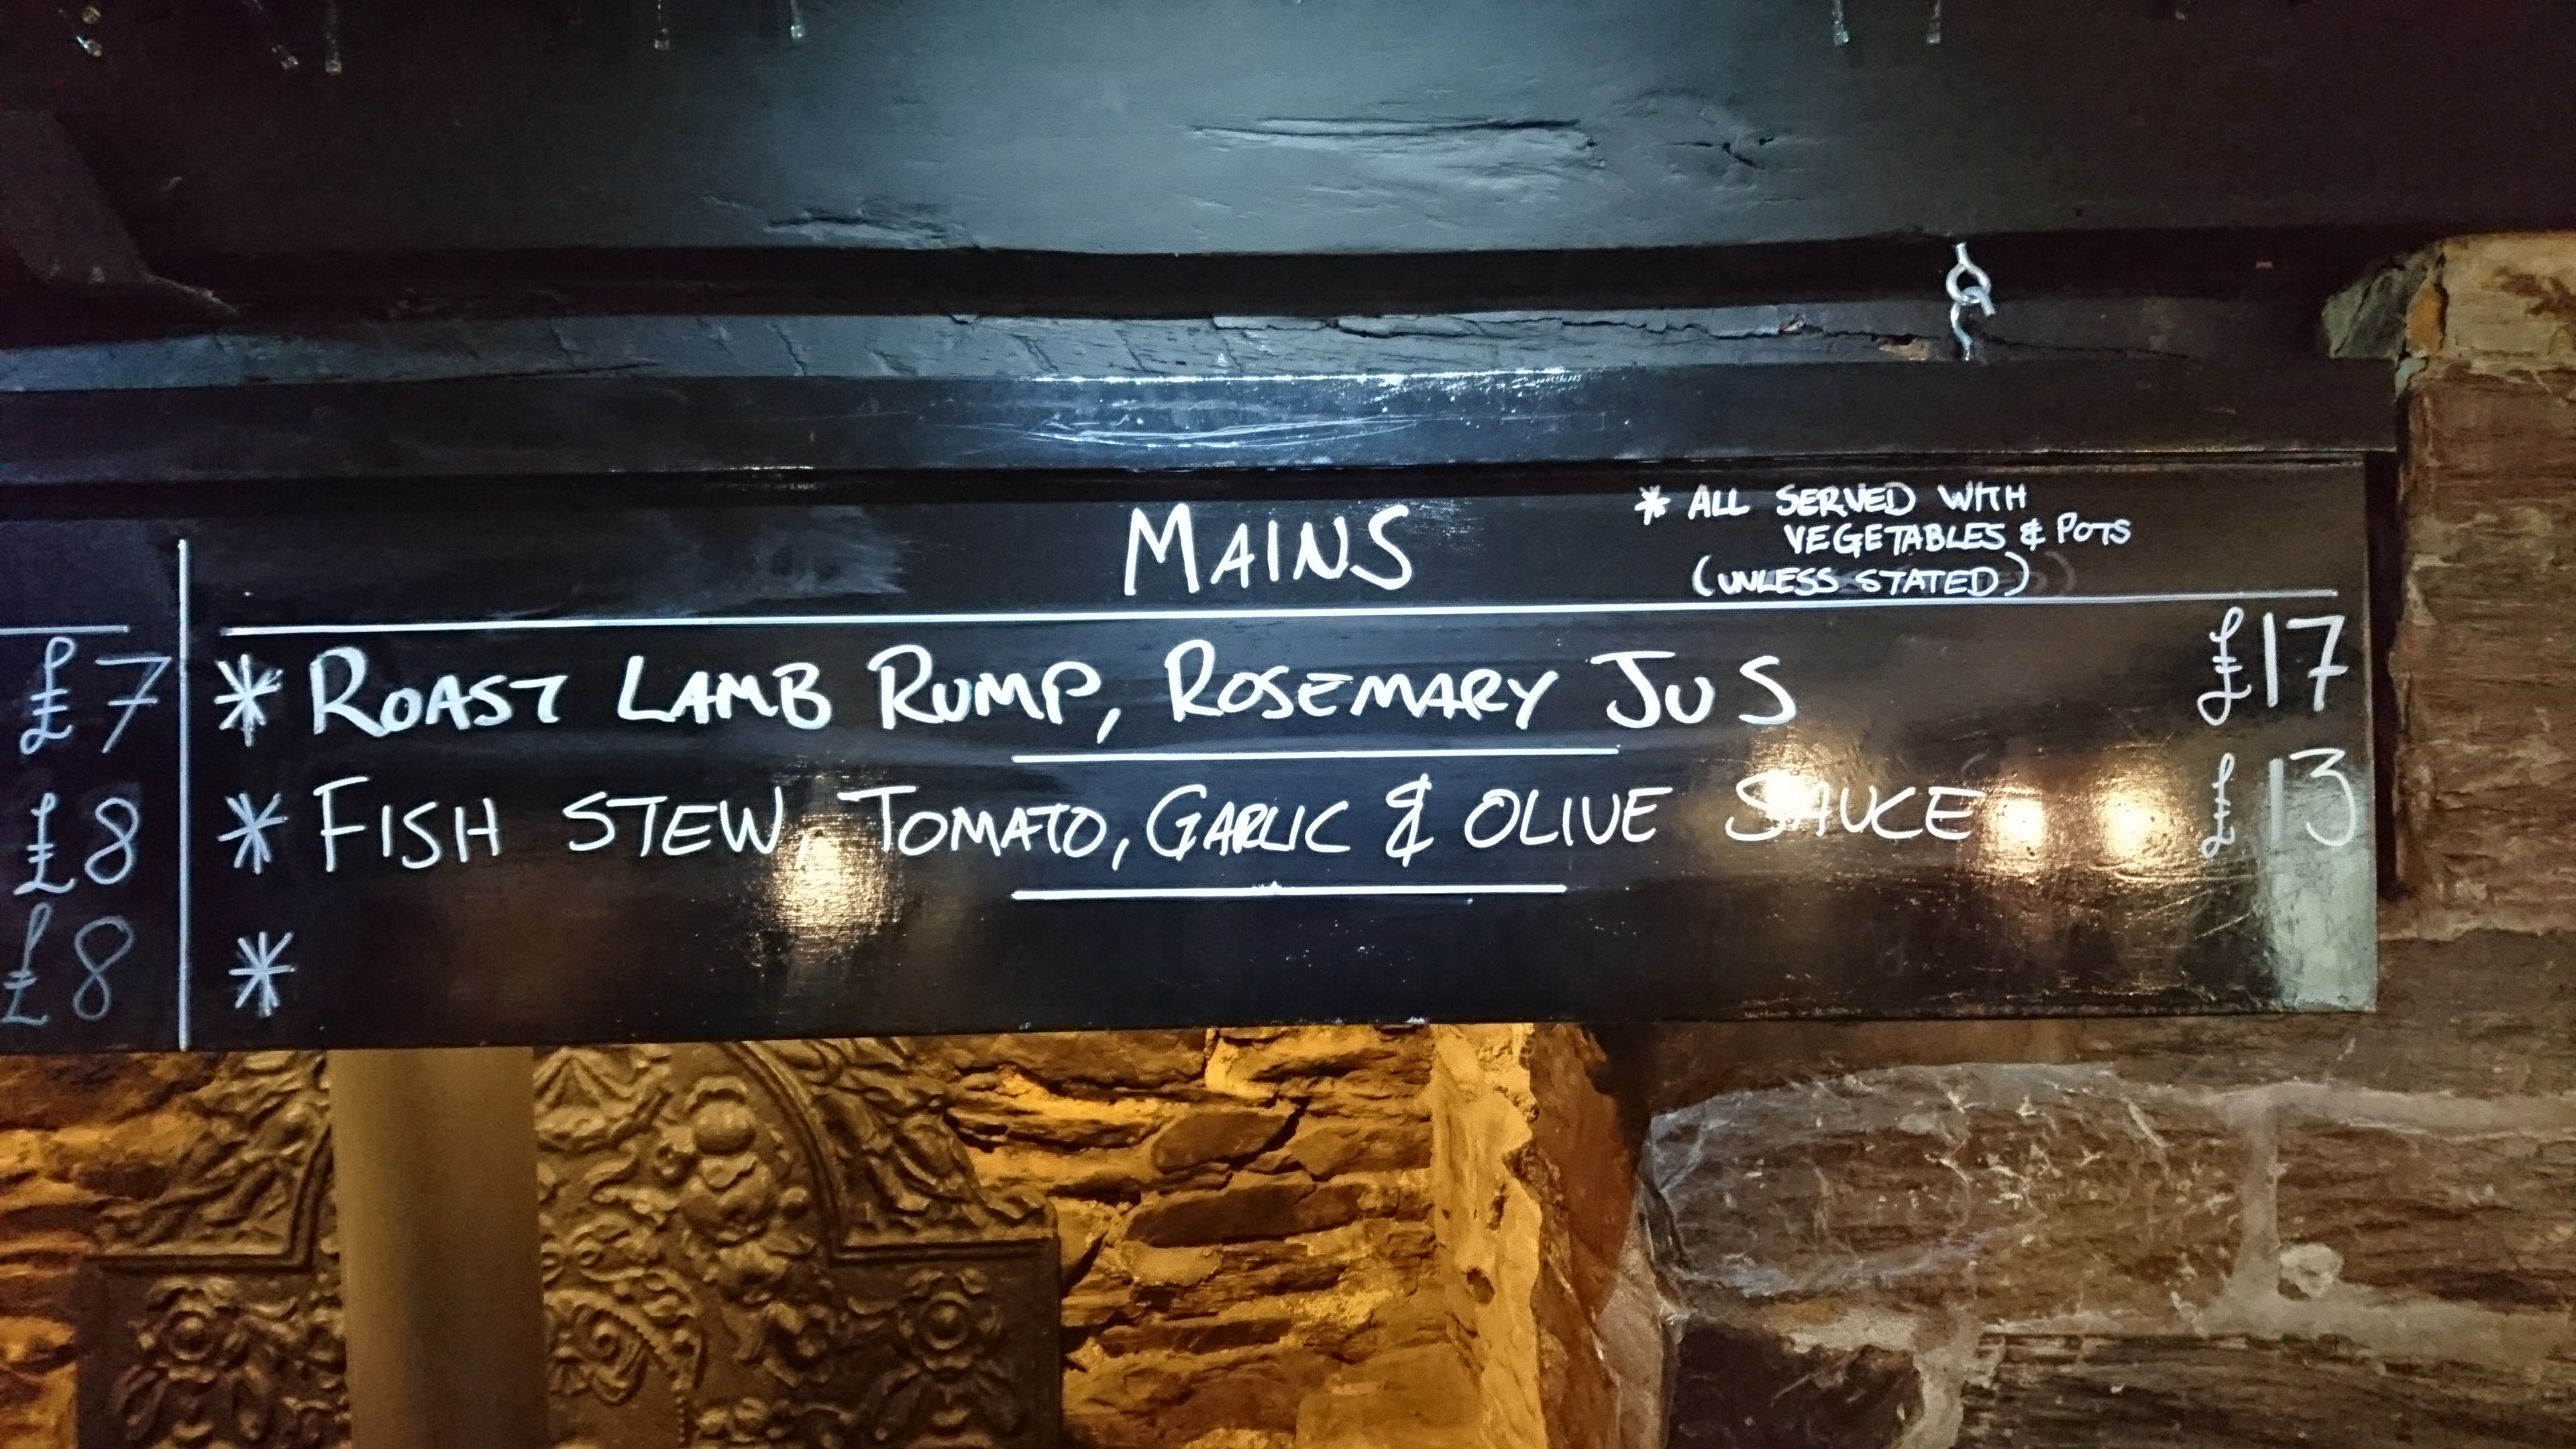 MAINS
* ALL SERVED WITH
VEGETABLES & POTS
(UNLESS STATED)
£7
* ROAST LAMB RUMP, ROSEMARY JUS £17
£8
* FISH STEW, TOMATO, GARLIC & OLIVE SAUCE £13
£8
*